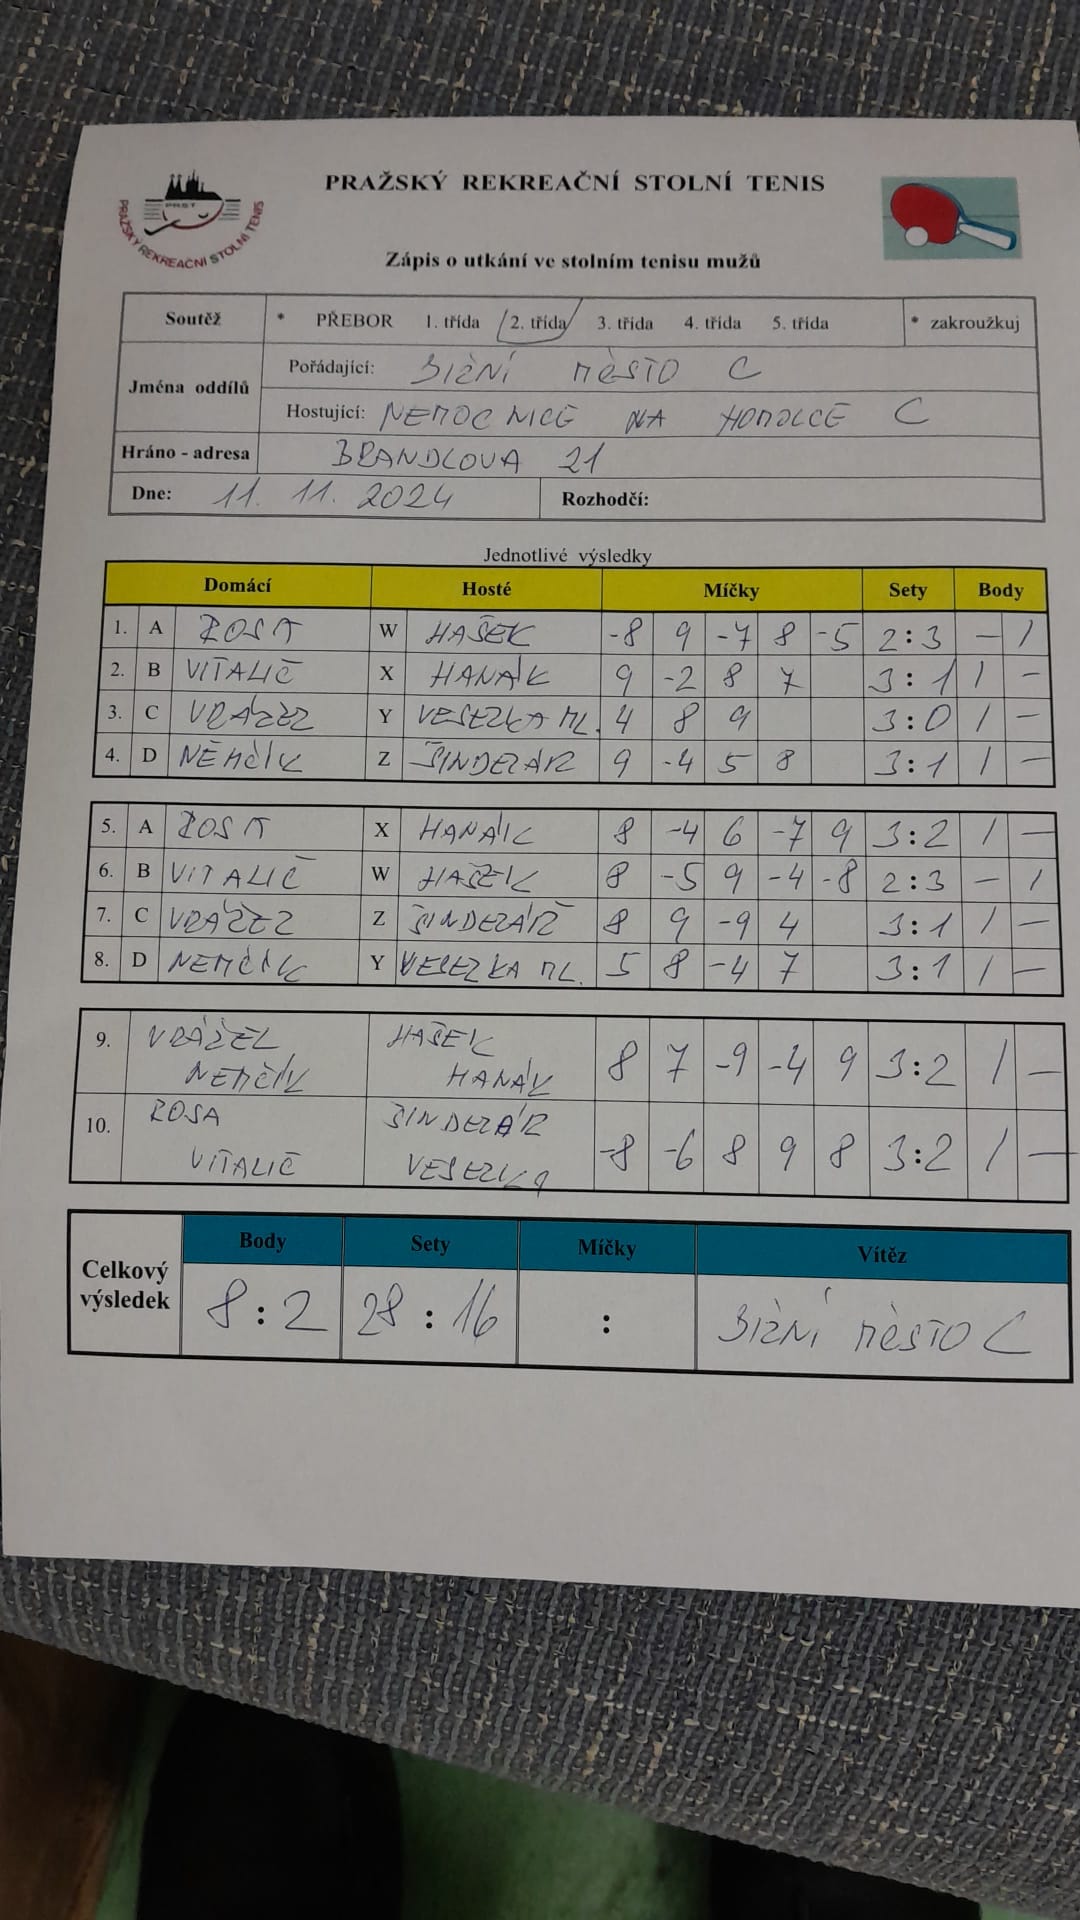 PRAŽSKÝ REKREAČNÍ STOLNÍ TENIS
PRST
PRAŽSKÝ REKREAČNÍ STOLNÍ TENIS
Zápis o utkání ve stolním tenisu mužů
Soutěž * PŘEBOR 1. třída 2. třída 3. třída 4. třída 5. třída * zakroužkuj
Jména oddílů
Pořádající: JIŽNÍ MĚSTO C
Hostující: NEMOCNICE NA HOMOLCE C
Hráno - adresa BRANDLOVA 21
Dne: 11. 11. 2024 Rozhodčí:
Jednotlivé výsledky
Domácí Hosté Míčky Sety Body
1. A ROSA W HAŠEK -8 9 -7 8 -5 2:3 - 1
2. B VITALIČ X HANÁK 9 -2 8 7 3:1 1 -
3. C VRÁŽEL Y VESELKA ML. 4 8 9 3:0 1 -
4. D NĚMČÍK Z ŠINDELÁŘ 9 -4 5 8 3:1 1 -
5. A ROSA X HANÁK 8 -4 6 -7 9 3:2 1 -
6. B VITALIČ W HAŠEK 8 -5 9 -4 -8 2:3 - 1
7. C VRÁŽEL Z ŠINDELÁŘ 8 9 -9 4 3:1 1 -
8. D NEMČÍK Y VESELKA ML. 5 8 -4 7 3:1 1 -
9. VRÁŽEL HAŠEK 8 7 -9 -4 9 3:2 1 -
NEMČÍK HANÁK
10. ROSA ŠINDELÁŘ -8 -6 8 9 8 3:2 1 -
VITALIČ VESELKA
Celkový výsledek
Body Sety Míčky Vítěz
8:2 28:16 : JIŽNÍ MĚSTO C